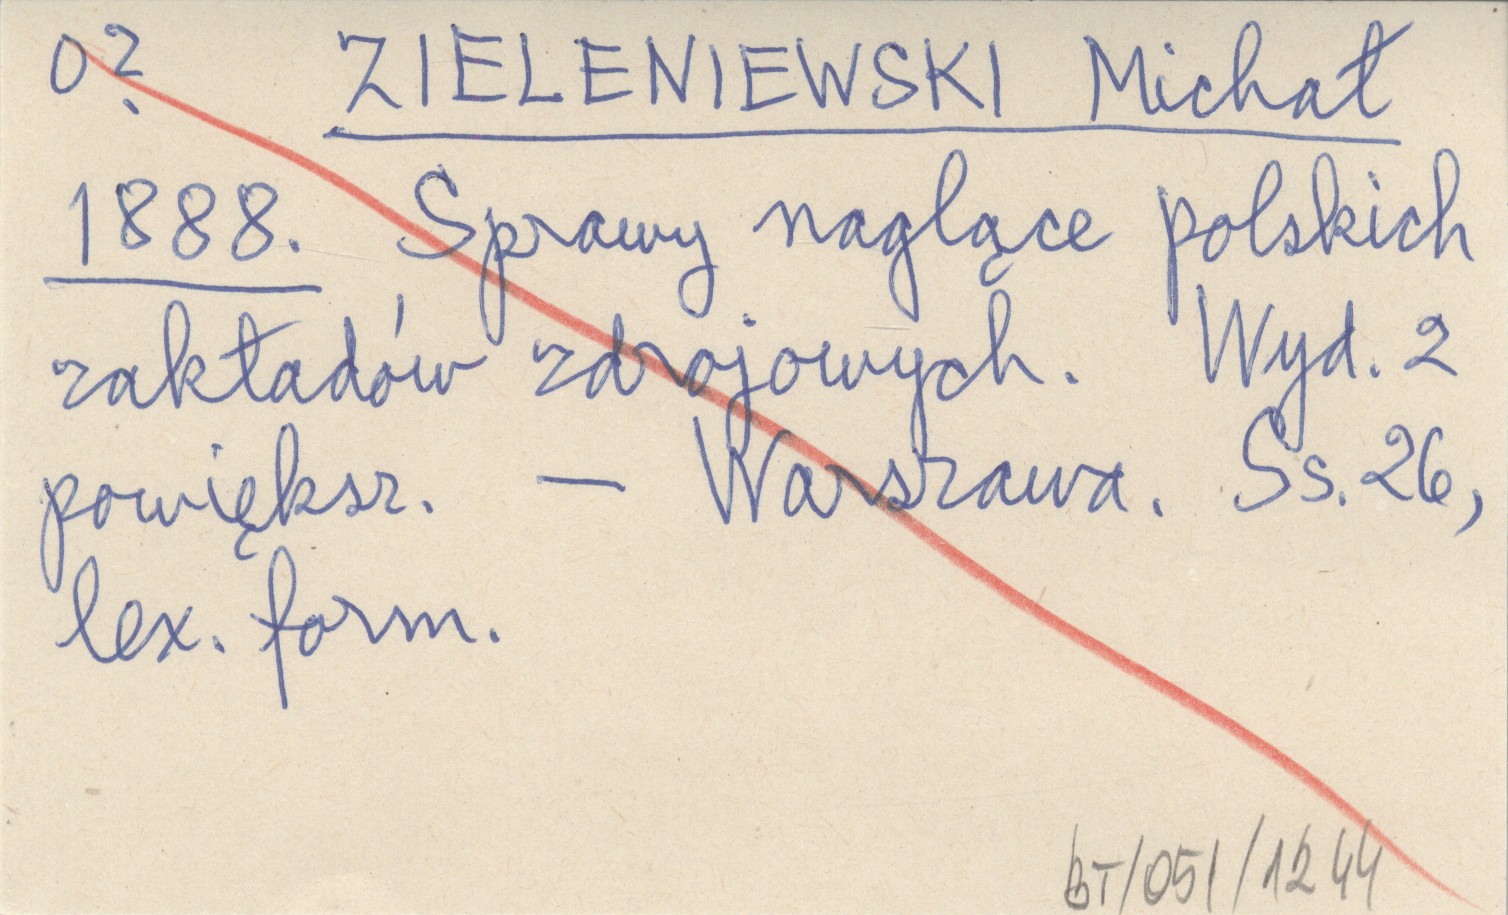 0? ZIELENIEWSKI Michał
1888. Sprawy naglące polskich
zakładów zdrojowych. Wyd. 2
powiększ. — Warszawa. Ss. 26,
lex. form.
BT/051/1244